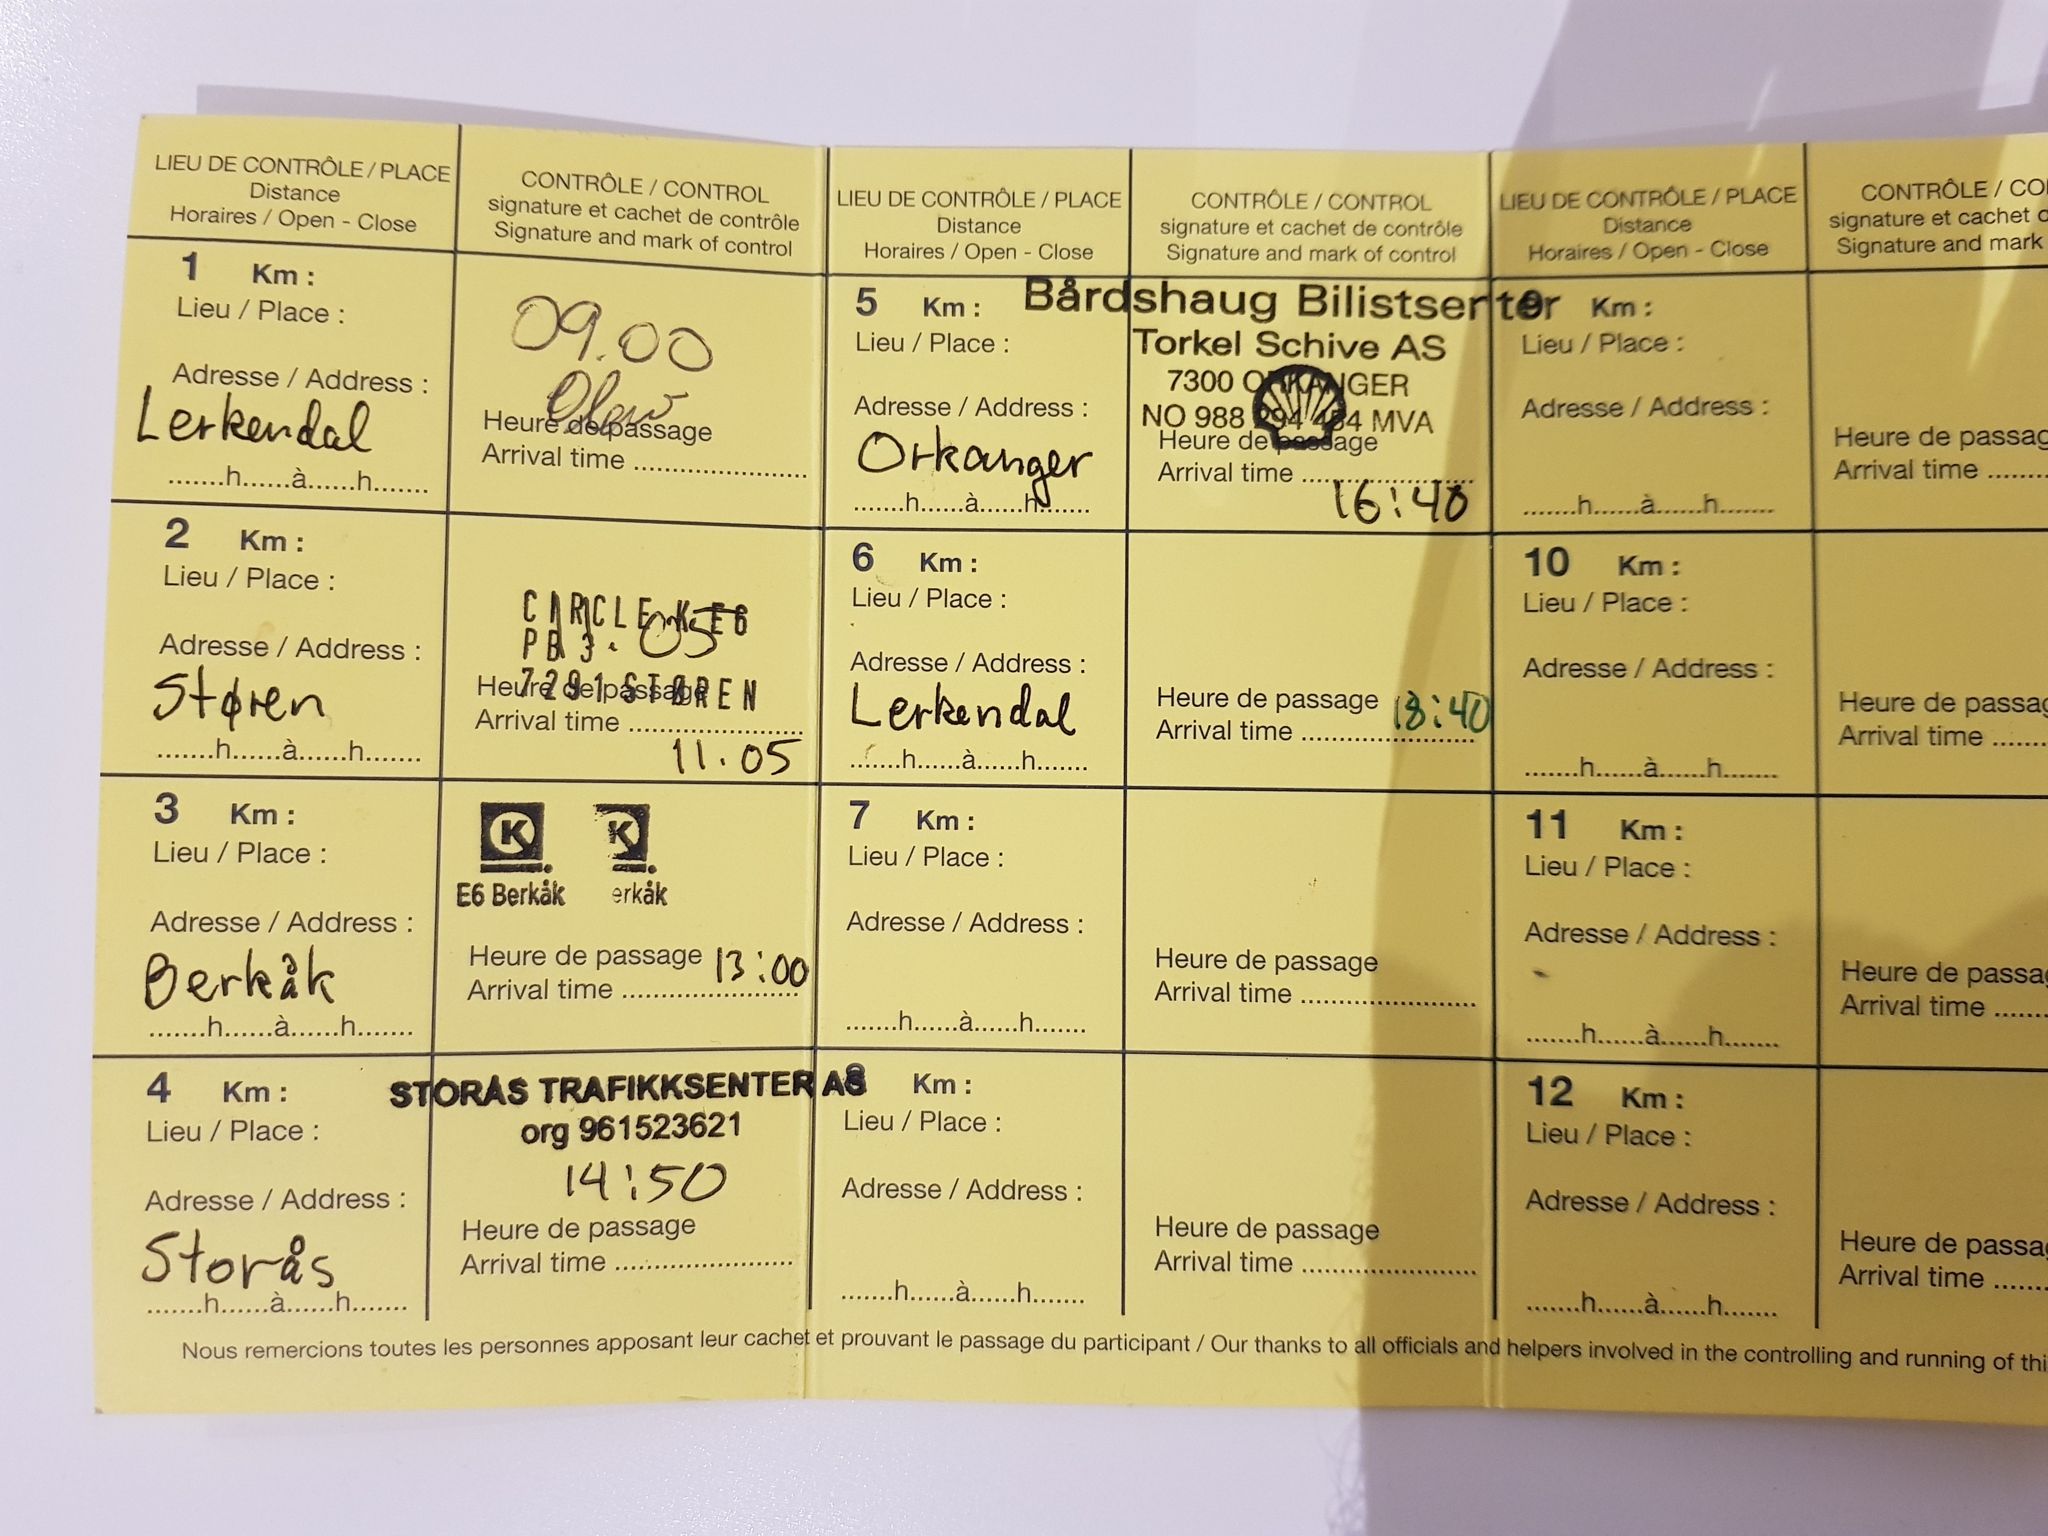 LIEU DE CONTRÔLE / PLACE
Distance
Horaires / Open - Close
CONTRÔLE / CONTROL
signature et cachet de contrôle
Signature and mark of control
1 Km :
Lieu / Place :
Adresse / Address :
Lerkendal
.......h......à......h.......
09.00
Heure de passage
Arrival time ........................
2 Km :
Lieu / Place :
Adresse / Address :
Støren
.......h......à......h.......
CIRCLE K E6
PB 3. 05
7291 STØREN
Heure de passage
Arrival time ........................
11.05
3 Km :
Lieu / Place :
Adresse / Address :
Berkåk
.......h......à......h.......
K K
E6 Berkåk erkåk
Heure de passage 13:00
Arrival time ........................
4 Km :
Lieu / Place :
Adresse / Address :
Storås
.......h......à......h.......
STORÅS TRAFIKKSENTER AS
org 961523621
14:50
Heure de passage
Arrival time ........................
LIEU DE CONTRÔLE / PLACE
Distance
Horaires / Open - Close
CONTRÔLE / CONTROL
signature et cachet de contrôle
Signature and mark of control
5 Km :
Lieu / Place :
Adresse / Address :
Orkanger
.......h......à......h.......
Bårdshaug Bilistsenter
Torkel Schive AS
7300 ORKANGER
NO 988 294 454 MVA
Heure de passage
Arrival time ........................
16:40
6 Km :
Lieu / Place :
Adresse / Address :
Lerkendal
.......h......à......h.......
Heure de passage 18:40
Arrival time ........................
7 Km :
Lieu / Place :
Adresse / Address :
.......h......à......h.......
Heure de passage
Arrival time ........................
8 Km :
Lieu / Place :
Adresse / Address :
.......h......à......h.......
Heure de passage
Arrival time ........................
LIEU DE CONTRÔLE / PLACE
Distance
Horaires / Open - Close
CONTRÔLE / CO
signature et cachet d
Signature and mark
9 Km :
Lieu / Place :
Adresse / Address :
.......h......à......h.......
Heure de passag
Arrival time .......
10 Km :
Lieu / Place :
Adresse / Address :
.......h......à......h.......
Heure de passag
Arrival time .......
11 Km :
Lieu / Place :
Adresse / Address :
.......h......à......h.......
Heure de passa
Arrival time .......
12 Km :
Lieu / Place :
Adresse / Address :
.......h......à......h.......
Heure de passa
Arrival time .......
Nous remercions toutes les personnes apposant leur cachet et prouvant le passage du participant / Our thanks to all officials and helpers involved in the controlling and running of thi